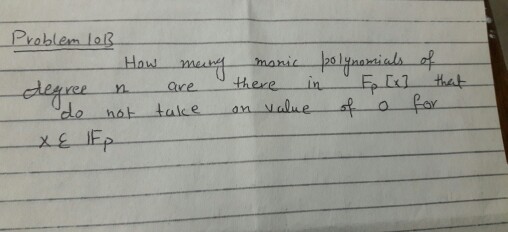 Problem 10B
How many monic polynomials of
degree n are there in Fp [x] that
do not take on value of 0 for
x ε IFp